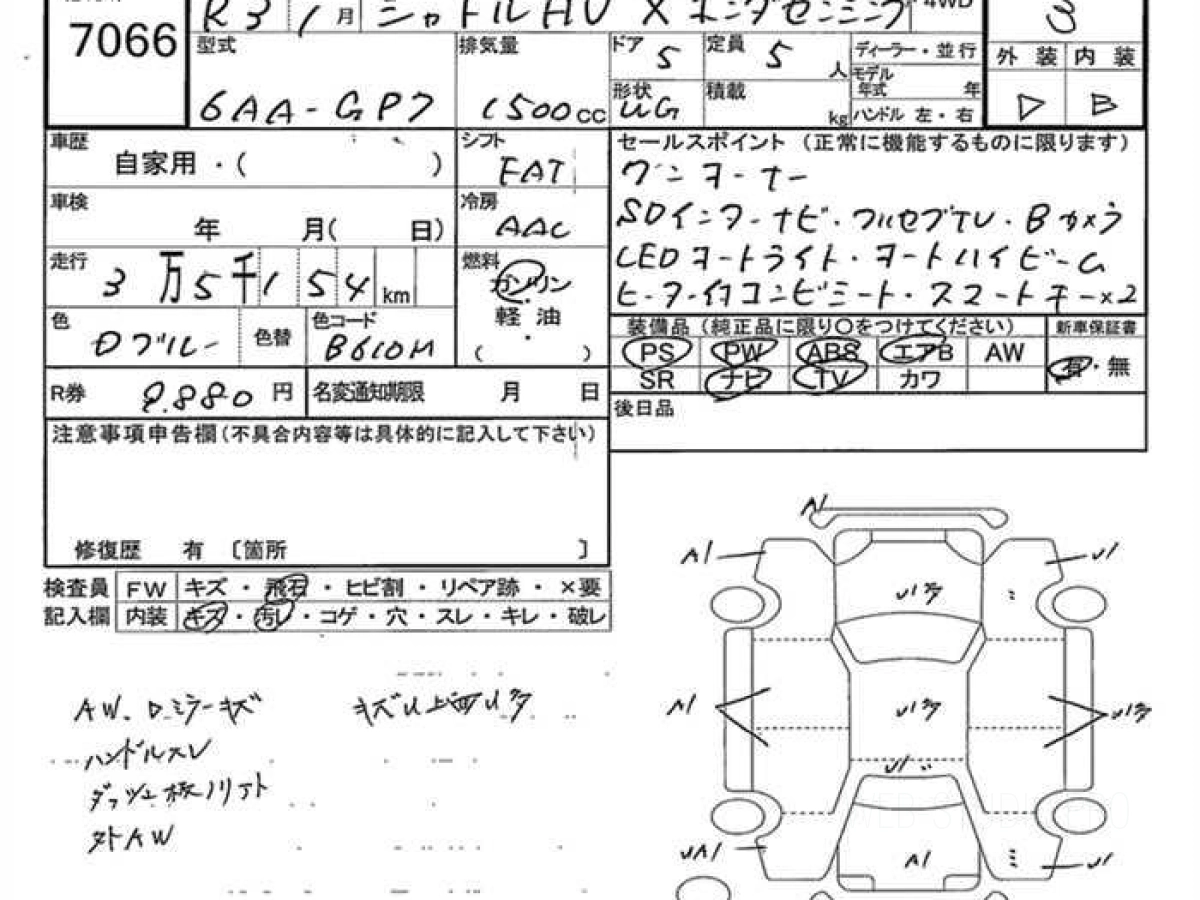 7066
R3 1 月 シャトルHV X ホンダセンシング 4WD 3
型式 6AA-GP7
排気量 1500 cc
ドア 5
定員 5 人
形状 UG
積載 kg
ディーラー・並行
モデル年式 年
ハンドル 左・右
外装 内装
D B
車歴 自家用・( )
シフト FAT
車検 年 月( 日)
冷房 AAC
走行 3万5千154km
燃料 ガソリン・軽油・( )
色 Dブルー 色替
色コード B610M
R券 9.880 円
名変通知期限 月 日
セールスポイント (正常に機能するものに限ります)
ワンオーナー
SDインターナビ・フルセグTV・Bカメラ
LEDオートライト・オートハイビーム
ヒーター付コンビシート・スマートキー×2
装備品 (純正品に限り〇をつけてください) 新車保証書
PS PW ABS エアB AW
SR ナビ TV カワ
有・無
後日品
注意事項申告欄(不具合内容等は具体的に記入して下さい)
修復歴 有 〔箇所 〕
検査員 FW キズ・飛石・ヒビ割・リペア跡・×要
記入欄 内装 キズ・汚レ・コゲ・穴・スレ・キレ・破レ
AW. ミラーキズ
ハンドルスレ
外AW
A1
A1 U1
U1
A1 U1 U1
U1
UA1 A1 U1